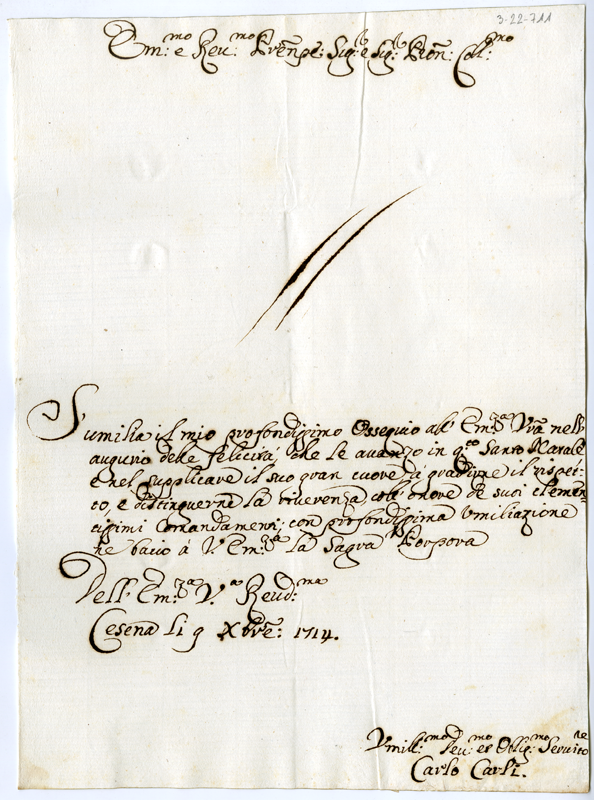 3-22-711
Em:mo e Reu:mo Prenpe: Sig:e Sig: Pron: Col:mo
S'umilia il mio profondissimo Ossequio all' Em:za Vra nell'
augurio delle felicità, che le auanzo in q:to Santo Natale
e nel supplicare il suo gran cuore à gradirne il rispet-
to, e distinguerne la riuerenza coll' onore de suoi clemen-
tissimi Comandamenti; con profondissima Vmiliazione
ne bacio à V' Em:za la Sagra Porpora
Dell' Em:za V:a Reud:ma
Cesena li 9 Xbre: 1714.
Vmill:mo Deu:mo et Oblig:mo Seruito:re
Carlo Carli.